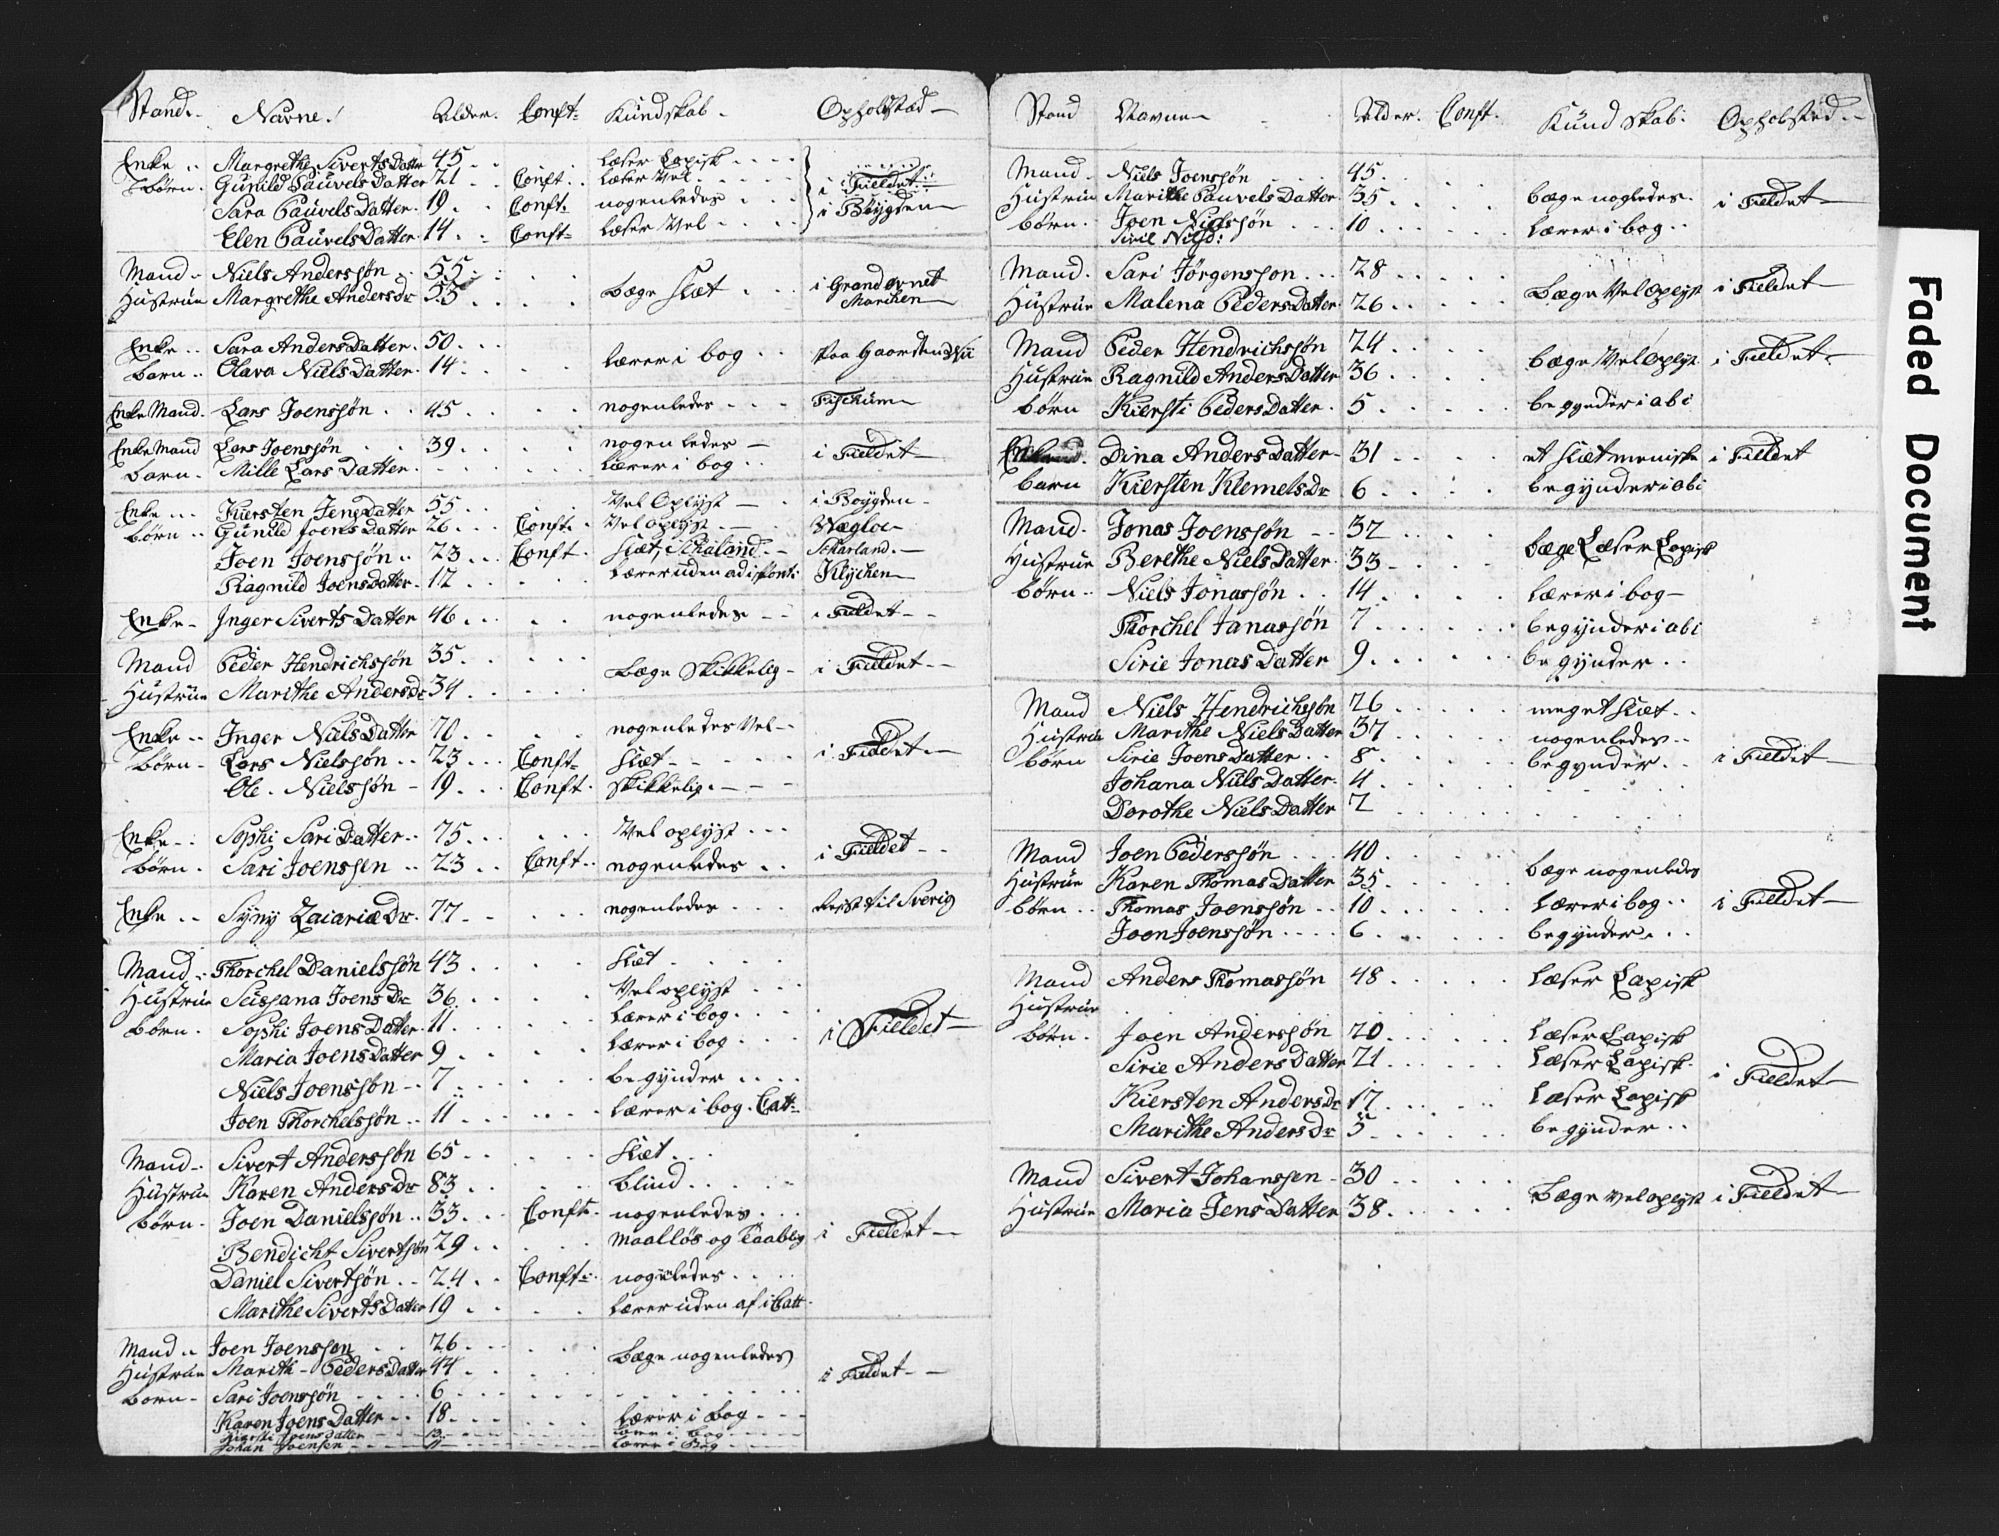 Stand. Navne. Alder. Conft. Kundskab. Opholdstæd
Enke Margrethe Siverts Datter 45 læser Lapisk
børn. Gunild Pauvels Datter 21 Conft. læser Vel i Fieldet
Sara Pauvels Datter. 19 Conft. nogenledes i Böygden
Elen Pauvels Datter. 14 Conft. læser Vel
Mand Niels Andersøn 55
Hustrue Margrethe Anders Dr 53 bæge slæt i Grandøvnet Marchen
Enke Sara Anders Datter. 50
barn Olava Niels Datter. 14 lærer i bog Paa Gaorden
Enke Mand. Lars Joensøn 45 nogenledes
Enke Mand Lars Joensøn 39 nogenledes i Fieldet
barn. Mille Lars Datter lærer i bog
Enke Kiersten Jens Datter 55 Vel Oplyst i Boygden
børn Gunild Joens Datter 26 Conft. Vel oplyst
Joen Joensøn 23 Conft. slæt, Scharland
Ragnild Joens Datter. 12 lærer uden ad
Enke Inger Siverts Datter 46 nogenledes i Fieldet
Mand Peder Hendrichsøn 35
Hustrue Marithe Anders Dr 34 bæge skikkelig i Fieldet
Enke Inger Niels Datter 70 nogenledes Vel
børn Lars Nielsøn 23 Conft. slæt i Fieldet
Ole. Nielsøn 19 Conft. skikkelig
Enke Sophi Sari Datter 75 Vel oplyst
børn. Sari Joensen 23 Conft. nogenledes i Fieldet
Enke Syny Zaiariæ Dr. 77 nogenledes Reist til Sverig
Mand Thorchel Danielsøn 43 slæt
Hustrue Susana Joens Dr 36 Vel oplyst
børn. Sophi Joens Datter 11 lærer i bog i Fieldet
Maria Joens Datter 9 lærer i bog
Niels Joensøn 7 begynder
Joen Thorchelsøn 11 lærer i bog. Catt
Mand Sivert Andersøn 65 slæt
Hustrue Karen Anders Dr 83 blind
børn Joen Danielsøn 33 Conft. nogenledes
Bendicht Sivertsøn 29 maalløs og taablig i Fieldet
Daniel Sivertsøn 24 Conft. nogenledes
Marithe Siverts Datter 19 lærer uden af i Catt
Mand Joen Joensen 26
Hustrue Marith Peders Datter 44 bæge nogenledes i Fieldet
børn Sari Joensøn 6
Karen Joens Datter 18 lærer i bog
Kiersti Joens datter 13 lærer i bog
Johan Joensen 11 lærer i bog
Stand Navne Alder. Conft. Kundskab. Opholdstæd.
Mand. Niels Joensøn 45
Hustrue Marithe Pauvels Datter 35 bæge nogledes i Fieldet
børn Joen Nielsøn 10 lærer i bog
Sirie Nilsd:
Mand. Sari Jørgenson 28
Hustrue Malena Peders Datter 26 bæge Vel oplyst i Fieldet
Mand Peder Hendrichsøn 24
Hustrue Ragnild Anders Datter 36 bæge Vel oplyst i Fieldet
børn Kiersti Peders Datter 5 begynder i abi
Dina Anders Datter 31 et slæt meniske i Fieldet
barn Kiersten Klemets Dr 6 begynder i abi
Mand. Jonas Joensøn 37
Hustrue Berethe Niels Datter 33 bæge Læser Lapisk
børn Niels Jonasøn 14 lærer i bog
Thorchel Janasøn 7 begynder i abi
Sirie Jonas Datter 9 begynder
Mand Niels Hendrichsøn 26 meget slæt
Hustrue Marithe Niels Datter 37 nogenledes
børn Sirie Joens Datter 8 begynder i Fieldet
Johana Niels Datter 4
Dorothe Niels Datter 2
Mand Joen Pedersøn 40
Hustrue Karen Thomas Datter 35 bæge nogenledes
børn Thomas Joensøn 10 lærer i bog i Fieldet
Joen Joensøn 6 begynder
Mand Anders Thomasøn 48 læser Lapisk
Hustrue
børn. Joen Andersøn 20 Læser Lapisk
Sirie Anders Datter 21 Læser Lapisk i Fieldet
Kiersten Anders Dr 17 Læser Lapisk
Marithe Anders Dr 5 begynder
Mand Sivert Johansen 30
Hustrue Maria Jens Datter 38 bæge vel oplyst i Fieldet
Faded Document